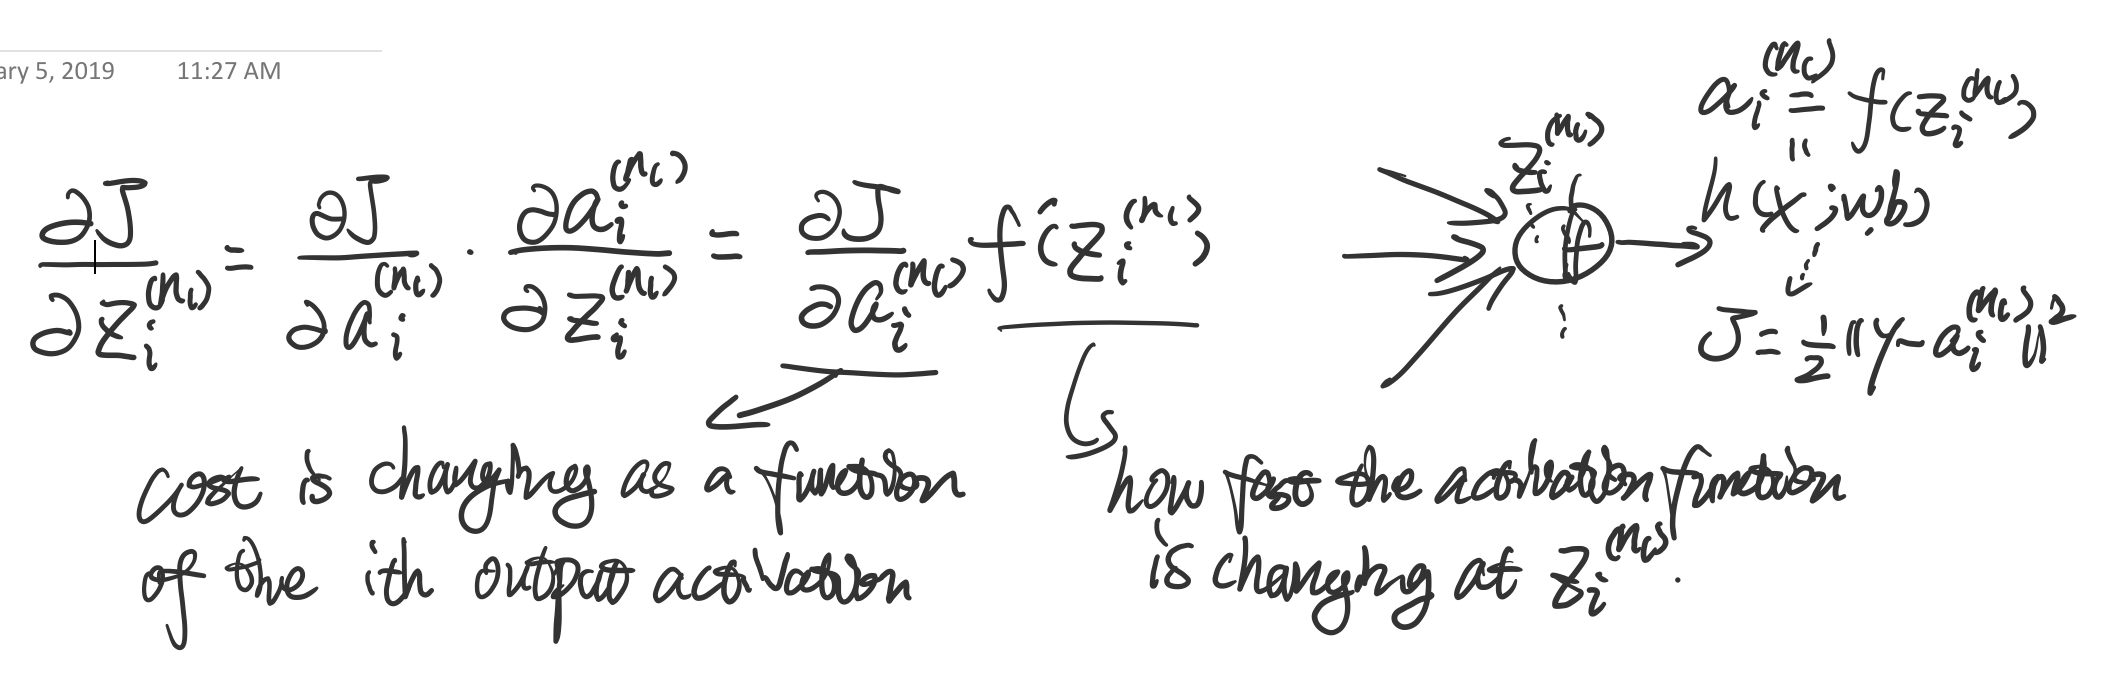 ary 5, 2019 11:27 AM
∂J/∂z_i^(n_l) = ∂J/∂a_i^(n_l) · ∂a_i^(n_l)/∂z_i^(n_l) = ∂J/∂a_i^(n_l) f'(z_i^(n_l))
cost is changing as a function
of the ith output activation
how fast the activation function
is changing at z_i^(n_l).
z_i^(n_l)
f
a_i^(n_l) = f(z_i^(n_l))
=
h(x;w,b)
J = 1/2 ||y - a_i^(n_l)||^2